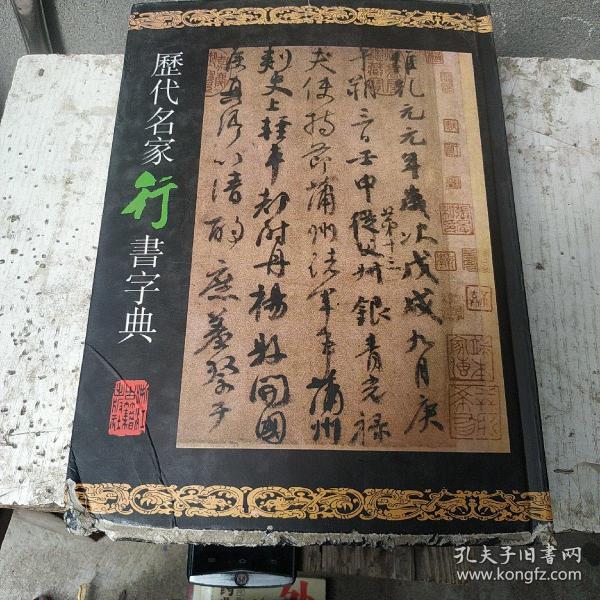 歷代名家行書字典
浙江古籍出版社
維乾元元年歲次戊戌九月庚
午朔三日壬申從父銀青光祿
第十三
夫使持節蒲州諸軍事蒲州
刺史上輕車都尉丹楊縣開國
侯真卿以清酌庶羞祭于
孔夫子旧書网
www.kongfz.com